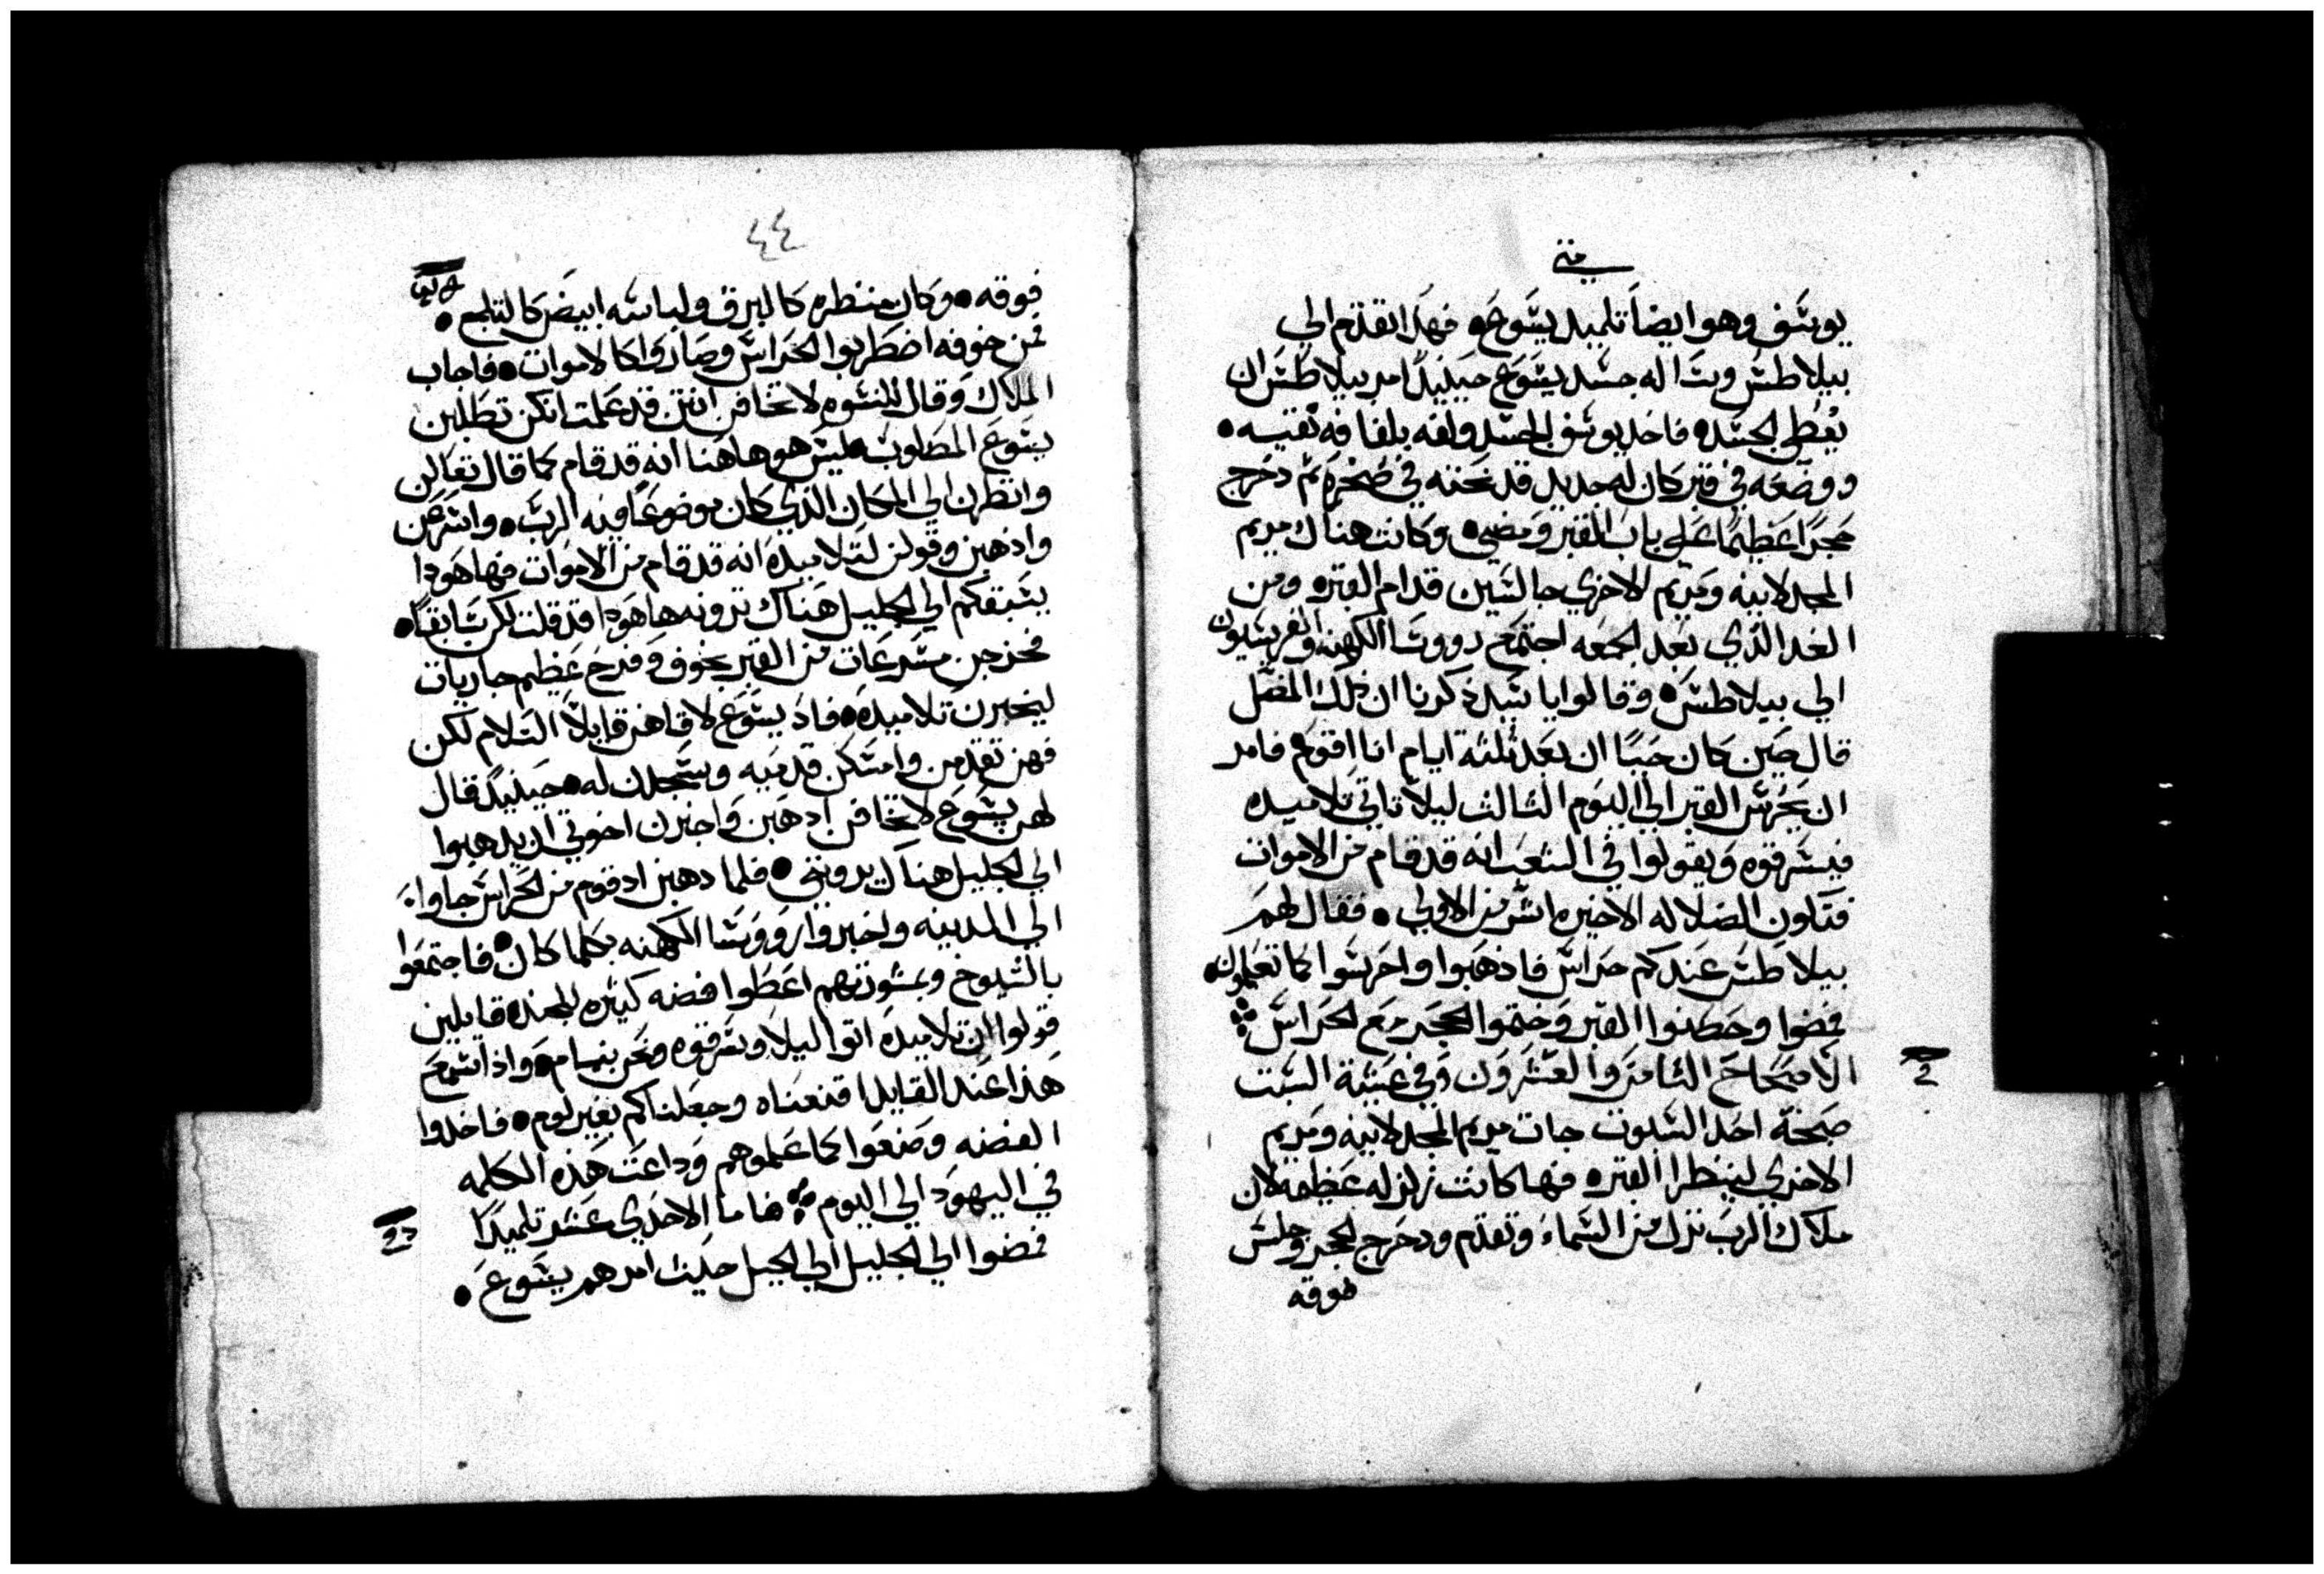 متى
يوسف وهو ايضاً تلميد يسوع فهدا تقدم الي
بيلاطس وسا له جسد يسوع حينيدٍ امر بيلاطس ان
يعطي الجسد فاخد يوسف الجسد ولفه بلفافه نقيه
ووضعه في قبر كان له جديد قد نحته في صخره تم دحرج
حجراً عظيماً علي باب القبر ومضي وكانت هناك مريم
المجدلانيه ومريم الاخري جالسين قدام القبر ومن
الغد الدي بعد الجمعه اجتمع رووسا الكهنه والفريسيون
الي بيلاطس وقالوا يا سيد ذكرنا ان ذلك المضل
قال حين كان حياً ان بعد ثلثة ايام انا اقوم فامر
ان يحرس القبر الي اليوم الثالث ليلا تاتي تلاميده
فيسرقوه ويقولوا في الشعب انه قد قام من الاموات
فتكون الضلاله الاخيره اشر من الاولي فقال لهم
بيلاطس عندكم حراس فاذهبوا واحرسوا كما تعلمون
فمضوا وحصنوا القبر وختموا الحجر مع الحراس
الاصحاح الثامن والعشرون وفي عشية السبت
صبحة احد السبوت جات مريم المجدلانيه ومريم
الاخري لينظرا القبر فها كانت زلزله عظيمه لان
ملاك الرب نزل من السماء وتقدم ودحرج الحجر وجلس
فوقه
٤٤
فوقه وكان منظره كالبرق ولباسه ابيض كالتلج
فمن خوفه اضطربوا الحراس وصاروا كالاموات فاجاب
الملاك وقال للنسوه لا تخافن انتن قد علمت انكن تطلبن
يسوع المصلوب ليس هو هاهنا انه قد قام كما قال تعالن
وانظرن الي المكان الذي كان موضوعاً فيه الرب واسرعن
واذهبن وقولن لتلاميده انه قد قام من الاموات فها هودا
يسبقكم الي الجليل هناك ترونه ها هودا قد قلت لكن سابقاً
فخرجن مسرعات من القبر بخوف وفرح عظيم جاريات
ليخبرن تلاميده فاد يسوع لاقاهن قايلاً السلام لكن
فهن تقدمن وامسكن قدميه وسجدن له حينيدٍ قال
لهن يسوع لا تخافن ادهبن واخبرن اخوتي ان يدهبوا
الي الجليل هناك يروني فلما دهبن اد قوم من الحراس جاوا
الي المدينه واخبروا رووسا الكهنه بكلما كان فاجتمعوا
بالشيوخ وبمشورتهم اعطوا فضه كثيره للجند قايلين
قولوا ان تلاميده اتوا ليلا وسرقوه ونحن نيام واذا سمع
هذا عند القايد اقنعناه وجعلناكم بغير لوم فاخدوا
الفضه وصنعوا كما علموهم وداعت هذه الكلمه
في اليهود الي اليوم فاما الاحدي عشر تلميداً
فمضوا الي الجليل الي الجبل حيث امرهم يسوع